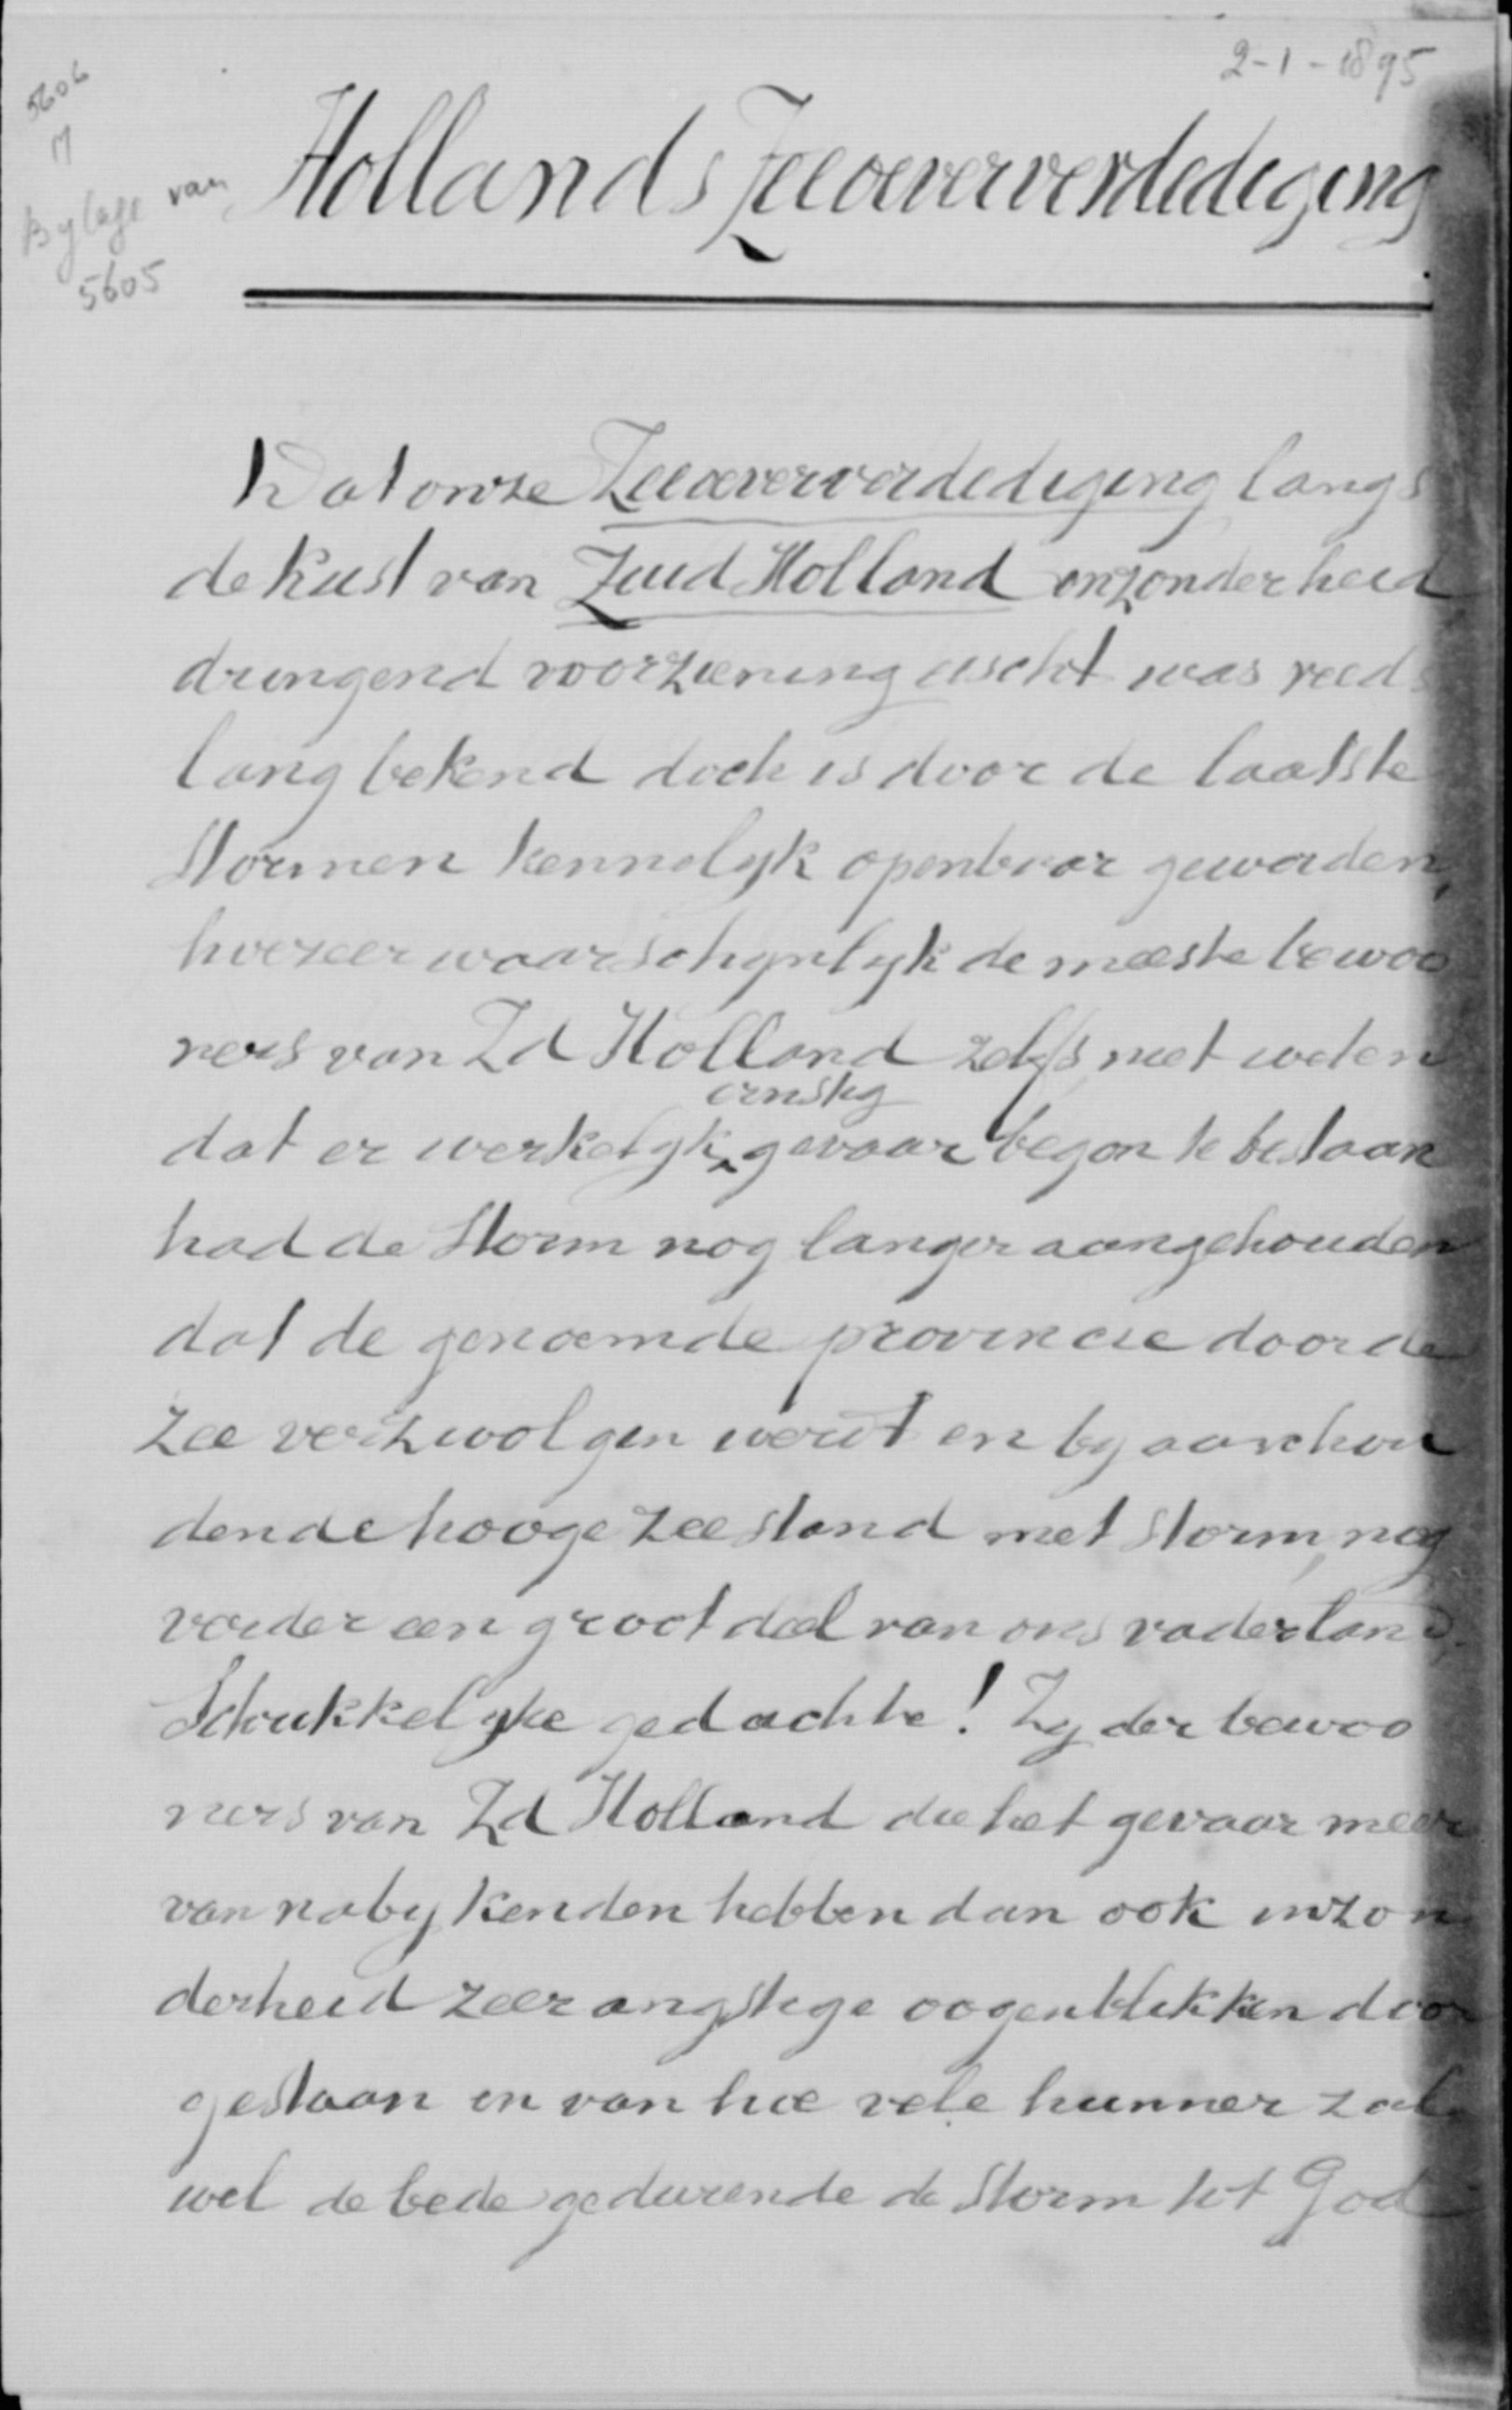 2-1-1895
5606
Bylage van
5605
Hollands Zeeoeververdediging
Dat onze Zeeoeververdediging langs
de Kust van Zuid Holland inzonderheid
dringend voorziening eischt was reeds
lang bekend doch is door de laatste
Stormen kennelyk openbaar geworden,
hoezeer waarschynlyk de meeste bewoo
ners van Zd Holland zelfs niet weten
dat er werkelyk ernstig gevaar begon te bestaan
had de Storm nog langer aangehouden
dat de genoemde provincie door de
Zee verzwolgen werdt en by aanhou
dende hooge zeestand met storm, nog
verder een groot deel van ons vaderland,
Schrikkelyke gedachte! Zy der bewoo
ners van Zd Holland die het gevaar meer
van naby kenden hebben dan ook inzon
derheid zeer angstige oogenblikken door
gestaan en van hoe vele hunner zal
wel de bede gedurende de Storm tot God